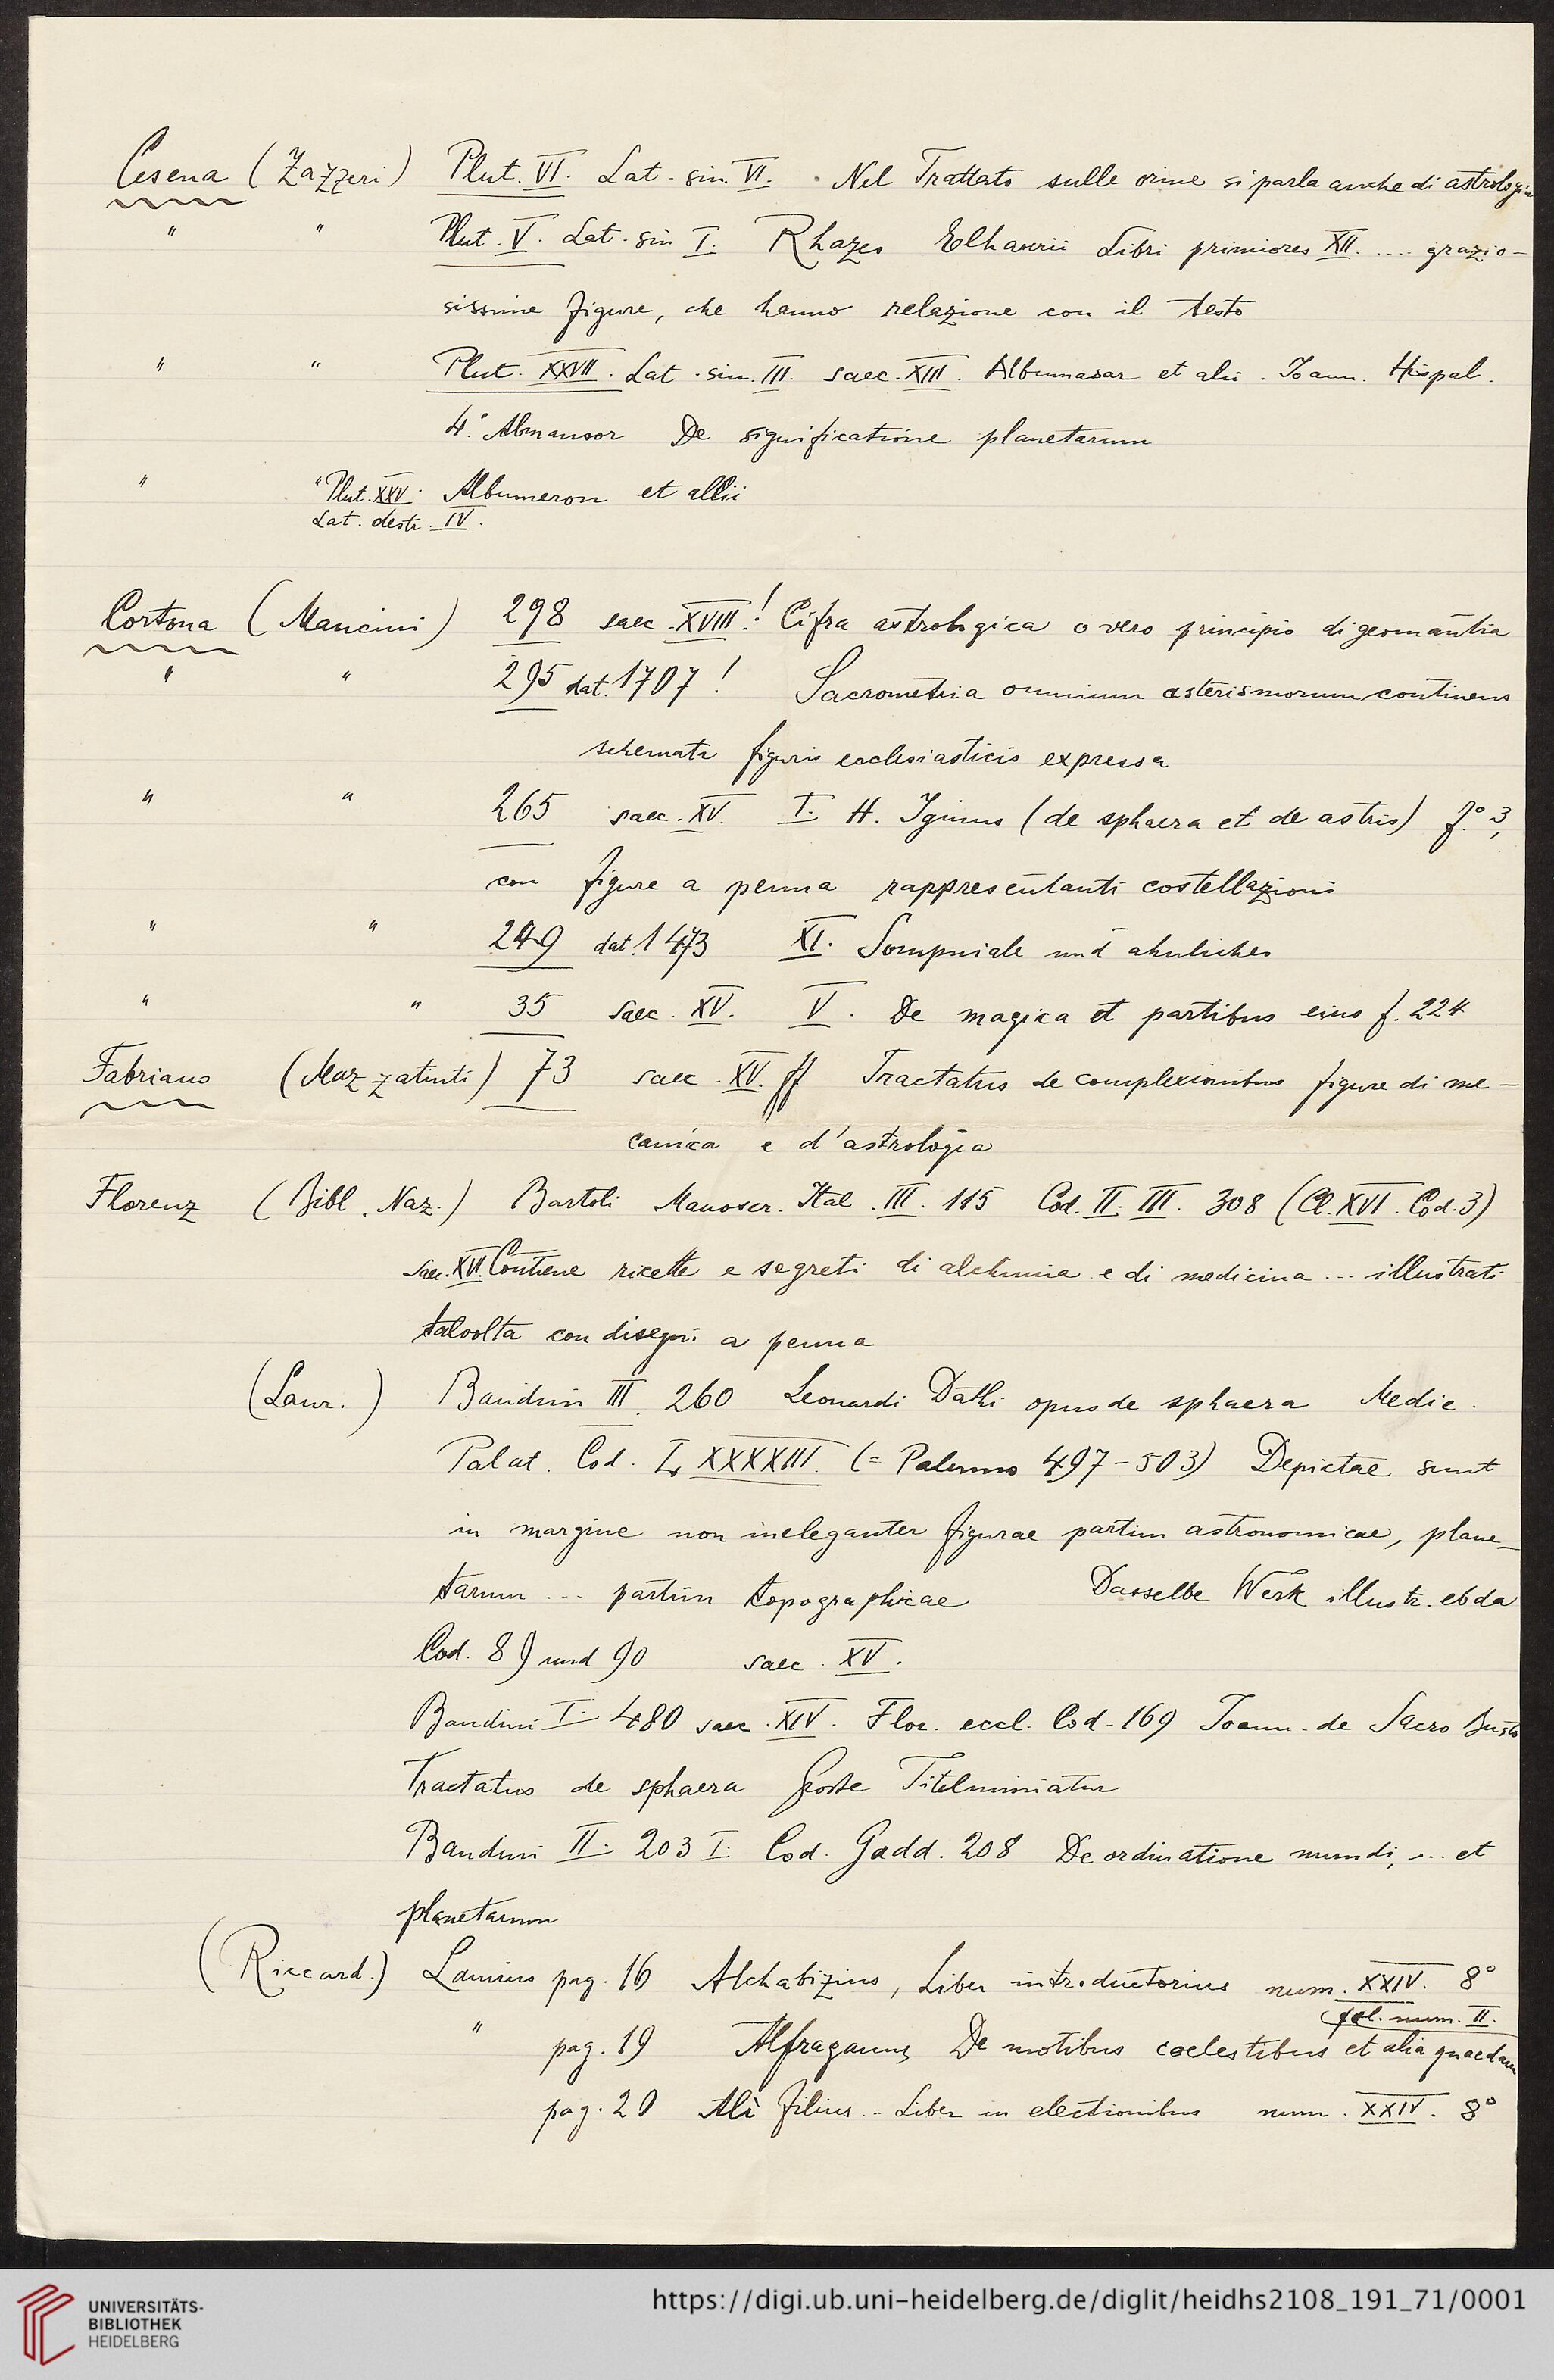 Cesena (Zazzeri) Plut. VI. Lat. sin. VI. Nel Trattato sulle orine si parla anche di astrologia
" " Plut. V. Lat. sin I. Rhazes Elhavii Libri primiores XII. .... grazio-
sissime figure, che hanno relazione con il testo
" " Plut. XXVII. Lat. sin. III. saec. XIII. Albumasar et alii. Joann. Hispal.
4.° Almansor De significatione planetarum
" " Plut. XXV. Albumeron et allii
Lat. destr. IV.
Cortona (Mancini) 298 saec. XVIII.! Cifra astrologica overo principio di geomantia
" " 295 dat. 1707! Sacrometria omnium asterismorum continens
schemata figuris ecclesiasticis expressa
" " 265 saec. XV. I. H. Iginus (de sphaera et de astris) f.° 3,
con figure a penna rappresentanti costellazioni
" " 249 dat. 1473 XI. Sompniale und ähnliches
" " 35 saec. XV. V. De magica et partibus eius f. 224
Fabriano (Mazzatinti) 73 saec. XV. ff Tractatus de complexionibus figure di me-
canica e d'astrologia
Florenz (Bibl. Naz.) Bartoli Manoscr. Ital. III. 115 Cod. II. III. 308 (Cl. XVI. Cod. 3)
saec. XVI. Contiene ricette e segreti di alchimia e di medicina ... illustrati
talvolta con disegni a penna
(Laur.) Bandini III. 260 Leonardi Dathi opus de sphaera Medic.
Palat. Cod. LXXXXIII. (= Palermo 497-503) Depictae sunt
in margine non ineleganter figurae partim astronomicae, plane-
tarum ... partim topographicae Dasselbe Werk illustr. ebda
Cod. 89 und 90 saec. XV.
Bandini I. 480 saec. XIV. Flor. eccl. Cod. 169 Joann. de Sacro Busto
Tractatus de sphaera Große Titelminiatur
Bandini II. 203 I. Cod. Gadd. 208 De ordinatione mundi, ... et
planetarum
(Riccard.) Lamius pag. 16 Alchabizius, Liber introductorius num. XXIV. 8°
" pag. 19 Alfraganus De motibus coelestibus et alia quaedam (fol. num. II.
pag. 20 Ali filius .. Liber in electionibus num. XXIV. 8°
UNIVERSITÄTS-
BIBLIOTHEK
HEIDELBERG
https://digi.ub.uni-heidelberg.de/diglit/heidhs2108_191_71/0001